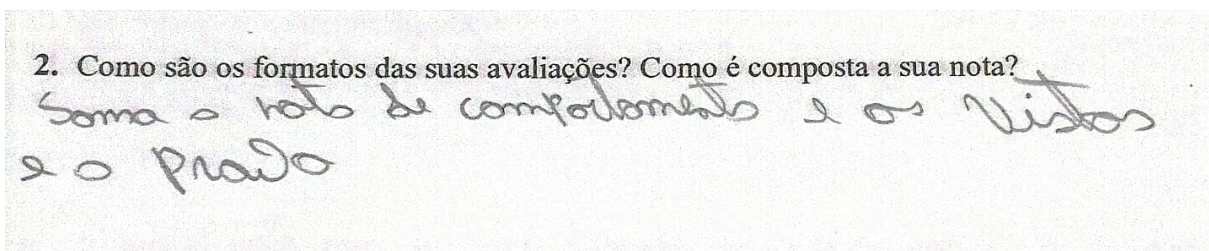 2. Como são os formatos das suas avaliações? Como é composta a sua nota?
Soma a nota de comportamento e os Vistos
e a prova